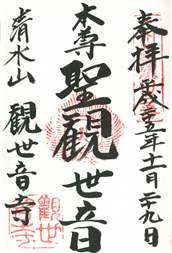 奉拝 厳 十五年十一月二十九日
本尊 聖観世音
清水山 観世音寺
観世